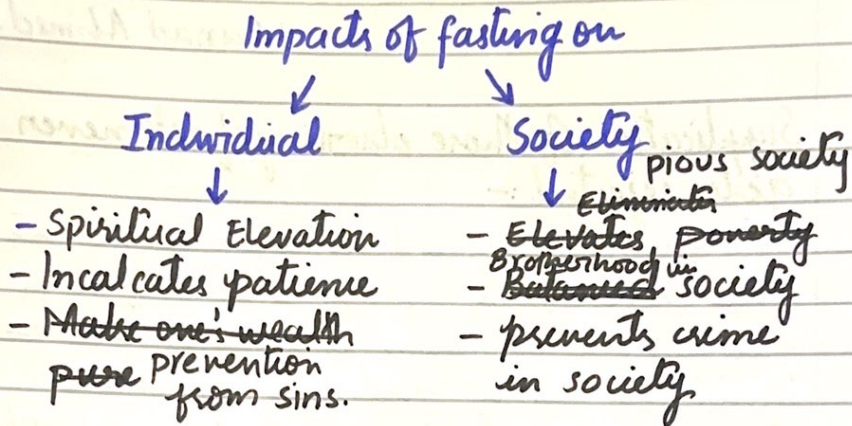 Impacts of fasting on
Individual
- Spiritual Elevation
- Incalcates patience
- Make one's wealth
pure prevention
from sins.
Society
pious society
Eliminates
- Elevates poverty
Brotherhood in
- Balanced society
- prevents crime
in society